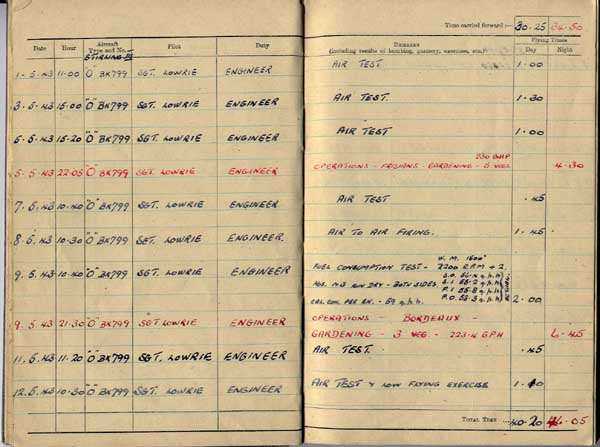 Time carried forward :— 30.25 34.50
Date Hour Aircraft Type and No. Pilot Duty REMARKS (including results of bombing, gunnery, exercises, etc.) Flying Times Day Night
STIRLING III
1.5.43 11.00 "O" BK799 SGT. LOWRIE ENGINEER AIR TEST. 1.00
3.5.43 15.00 "O" BK799 SGT. LOWRIE ENGINEER AIR TEST. 1.30
5.5.43 15.20 "O" BK799 SGT. LOWRIE ENGINEER AIR TEST 1.00
230 GMP
5.5.43 22.05 "O" BK799 SGT. LOWRIE ENGINEER OPERATIONS - FRISIANS - GARDENING - 5 VEG. 4.30
7.5.43 10.40 "O" BK799 SGT. LOWRIE ENGINEER AIR TEST .45
8.5.43 10.30 "O" BK799 SGT. LOWRIE ENGINEER. AIR TO AIR FIRING. 1.45
W.M. 1500'
9.5.43 10.40 "O" BK799 SGT. LOWRIE ENGINEER FUEL CONSUMPTION TEST - 2200 R.P.M + 2.
NOS. RUN DRY - BOTH SIDES.
CAL. CON. PER EN. - 59 g.p.h. 2.00
9.5.43 21.30 "O" BK799 SGT LOWRIE ENGINEER OPERATIONS - BORDEAUX -
GARDENING - 3 VEG. - 223.4 GPH 6.45
11.5.43 11.20 "O" BK799 SGT. LOWRIE ENGINEER AIR TEST. .45
12.5.43 10.30 "O" BK799 SGT. LOWRIE ENGINEER AIR TEST & LOW FLYING EXERCISE 1.10
TOTAL TIME 40.20 46.05